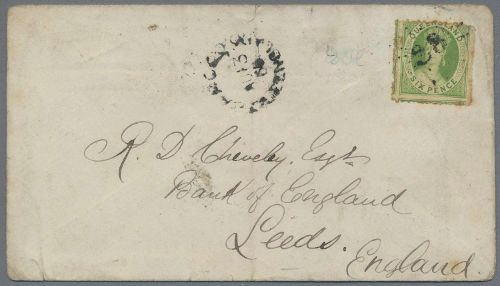 QUEENSLAND
SIX PENCE
R. D. Cheveley, Esqre
Bank of England
Leeds.
England.